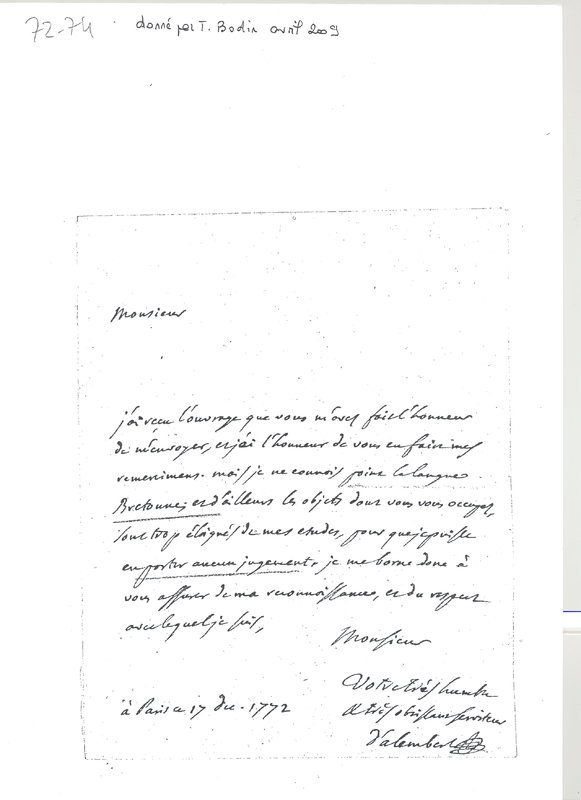 72-74
donné par T. Bodin avril 2009
Monsieur
j'ai recu l'ouvrage que vous m'avés fait l'honneur
de m'envoyer, et j'ai l'honneur de vous en faire mes
remercimens. mais je ne connois point la langue
Bretonne, et d'ailleurs les objets dont vous vous occupez,
sont trop éloignés de mes etudes, pour que je puisse
en porter aucun jugement. je me borne donc à
vous assurer de ma reconnoissance, et du respect
avec lequel je suis,
Monsieur
Votre très humble
et très obéissant serviteur
à Paris ce 17 dec. 1772
D'alembert